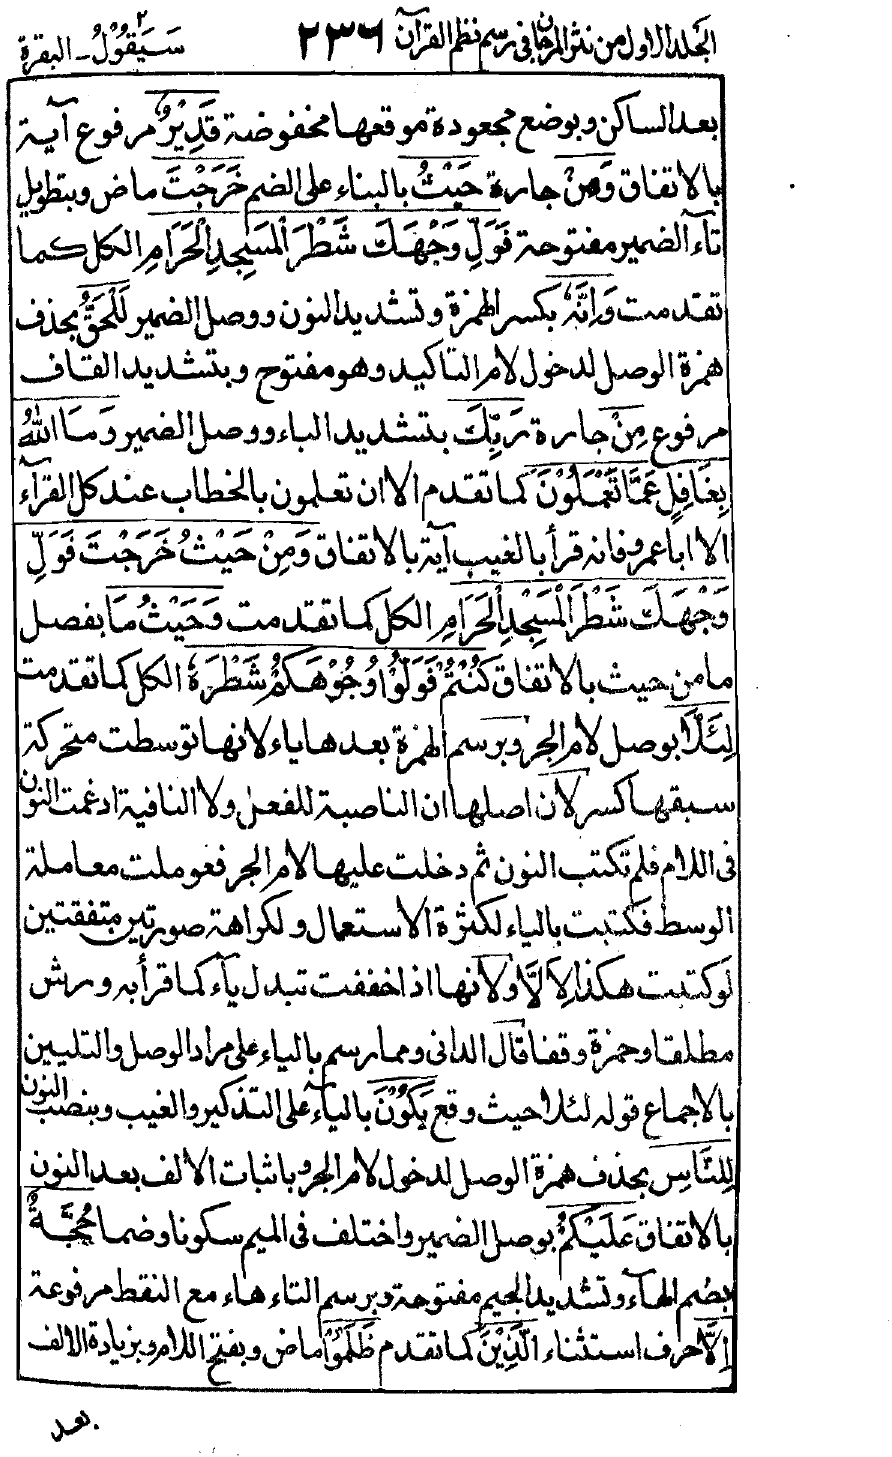 الجلد الاول من نثر المرجان فى رسم نظم القرآن ٢٣٦ سَيَقُوْلُ ٢ - البقرة
بعد الساكن وبوضع مجعودة موقعها مخفوضة قَدِيْرٌ مرفوع آية
بالاتفاق وَمِنْ جارة حَيْثُ بالبناء على الضم خَرَجْتَ ماض وبتطويل
تاء الضمير مفتوحة فَوَلِّ وَجْهَكَ شَطْرَ الْمَسْجِدِ الْحَرَامِ الكل كما
تقدمت وَاِنَّهٗ بكسر الهمزة وتشديد النون ووصل الضمير لَلْحَقُّ بحذف
همزة الوصل لدخول لام التاكيد وهو مفتوح وبتشديد القاف
مرفوع مِنْ جارة رَبِّكَ بتشديد الباء ووصل الضمير وَمَا اللّٰهُ
بِغَافِلٍ عَمَّا تَعْمَلُوْنَ كما تقدم الا ان تعلمون بالخطاب عند كل القرآء
الا ابا عمرو فانه قرأ بالغيب آية بالاتفاق وَمِنْ حَيْثُ خَرَجْتَ فَوَلِّ
وَجْهَكَ شَطْرَ الْمَسْجِدِ الْحَرَامِ الكل كما تقدمت وَحَيْثُ مَا بفصل
ما من حيث بالاتفاق كُنْتُمْ فَوَلُّوْا وُجُوْهَكُمْ شَطْرَهٗ الكل كما تقدمت
لِئَلَّا بوصل لام الجر وبرسم الهمزة بعدها ياء لانها توسطت متحركة
سبقها كسر لان اصلها ان الناصبة للفعل ولا النافية ادغمت النون
فى اللام فلم تكتب النون ثم دخلت عليها لام الجر فعوملت معاملة
الوسط فكتبت بالياء لكثرة الاستعمال ولكراهة صورتين متفقتين
لو كتبت هكذا لِاَلَّا ولانها اذا خففت تبدل ياء كما قرأ به ورش
مطلقا وحمزة وقفا قال الدانى ومما رسم بالياء على مراد الوصل والتليين
بالاجماع قوله لئلا حيث وقع يَكُوْنَ بالياء على التذكير والغيب وبنصب النون
لِلنَّاسِ بحذف همزة الوصل لدخول لام الجر وباثبات الالف بعد النون
بالاتفاق عَلَيْكُمْ بوصل الضمير واختلف فى الميم سكونا وضما حُجَّةٌ
بضم الهاء وتشديد الجيم مفتوحة وبرسم التاء هاء مع النقط مرفوعة
اِلَّا حرف استثناء الَّذِيْنَ كما تقدم ظَلَمُوْا ماض وبفتح اللام وبزيادة الالف
بعد